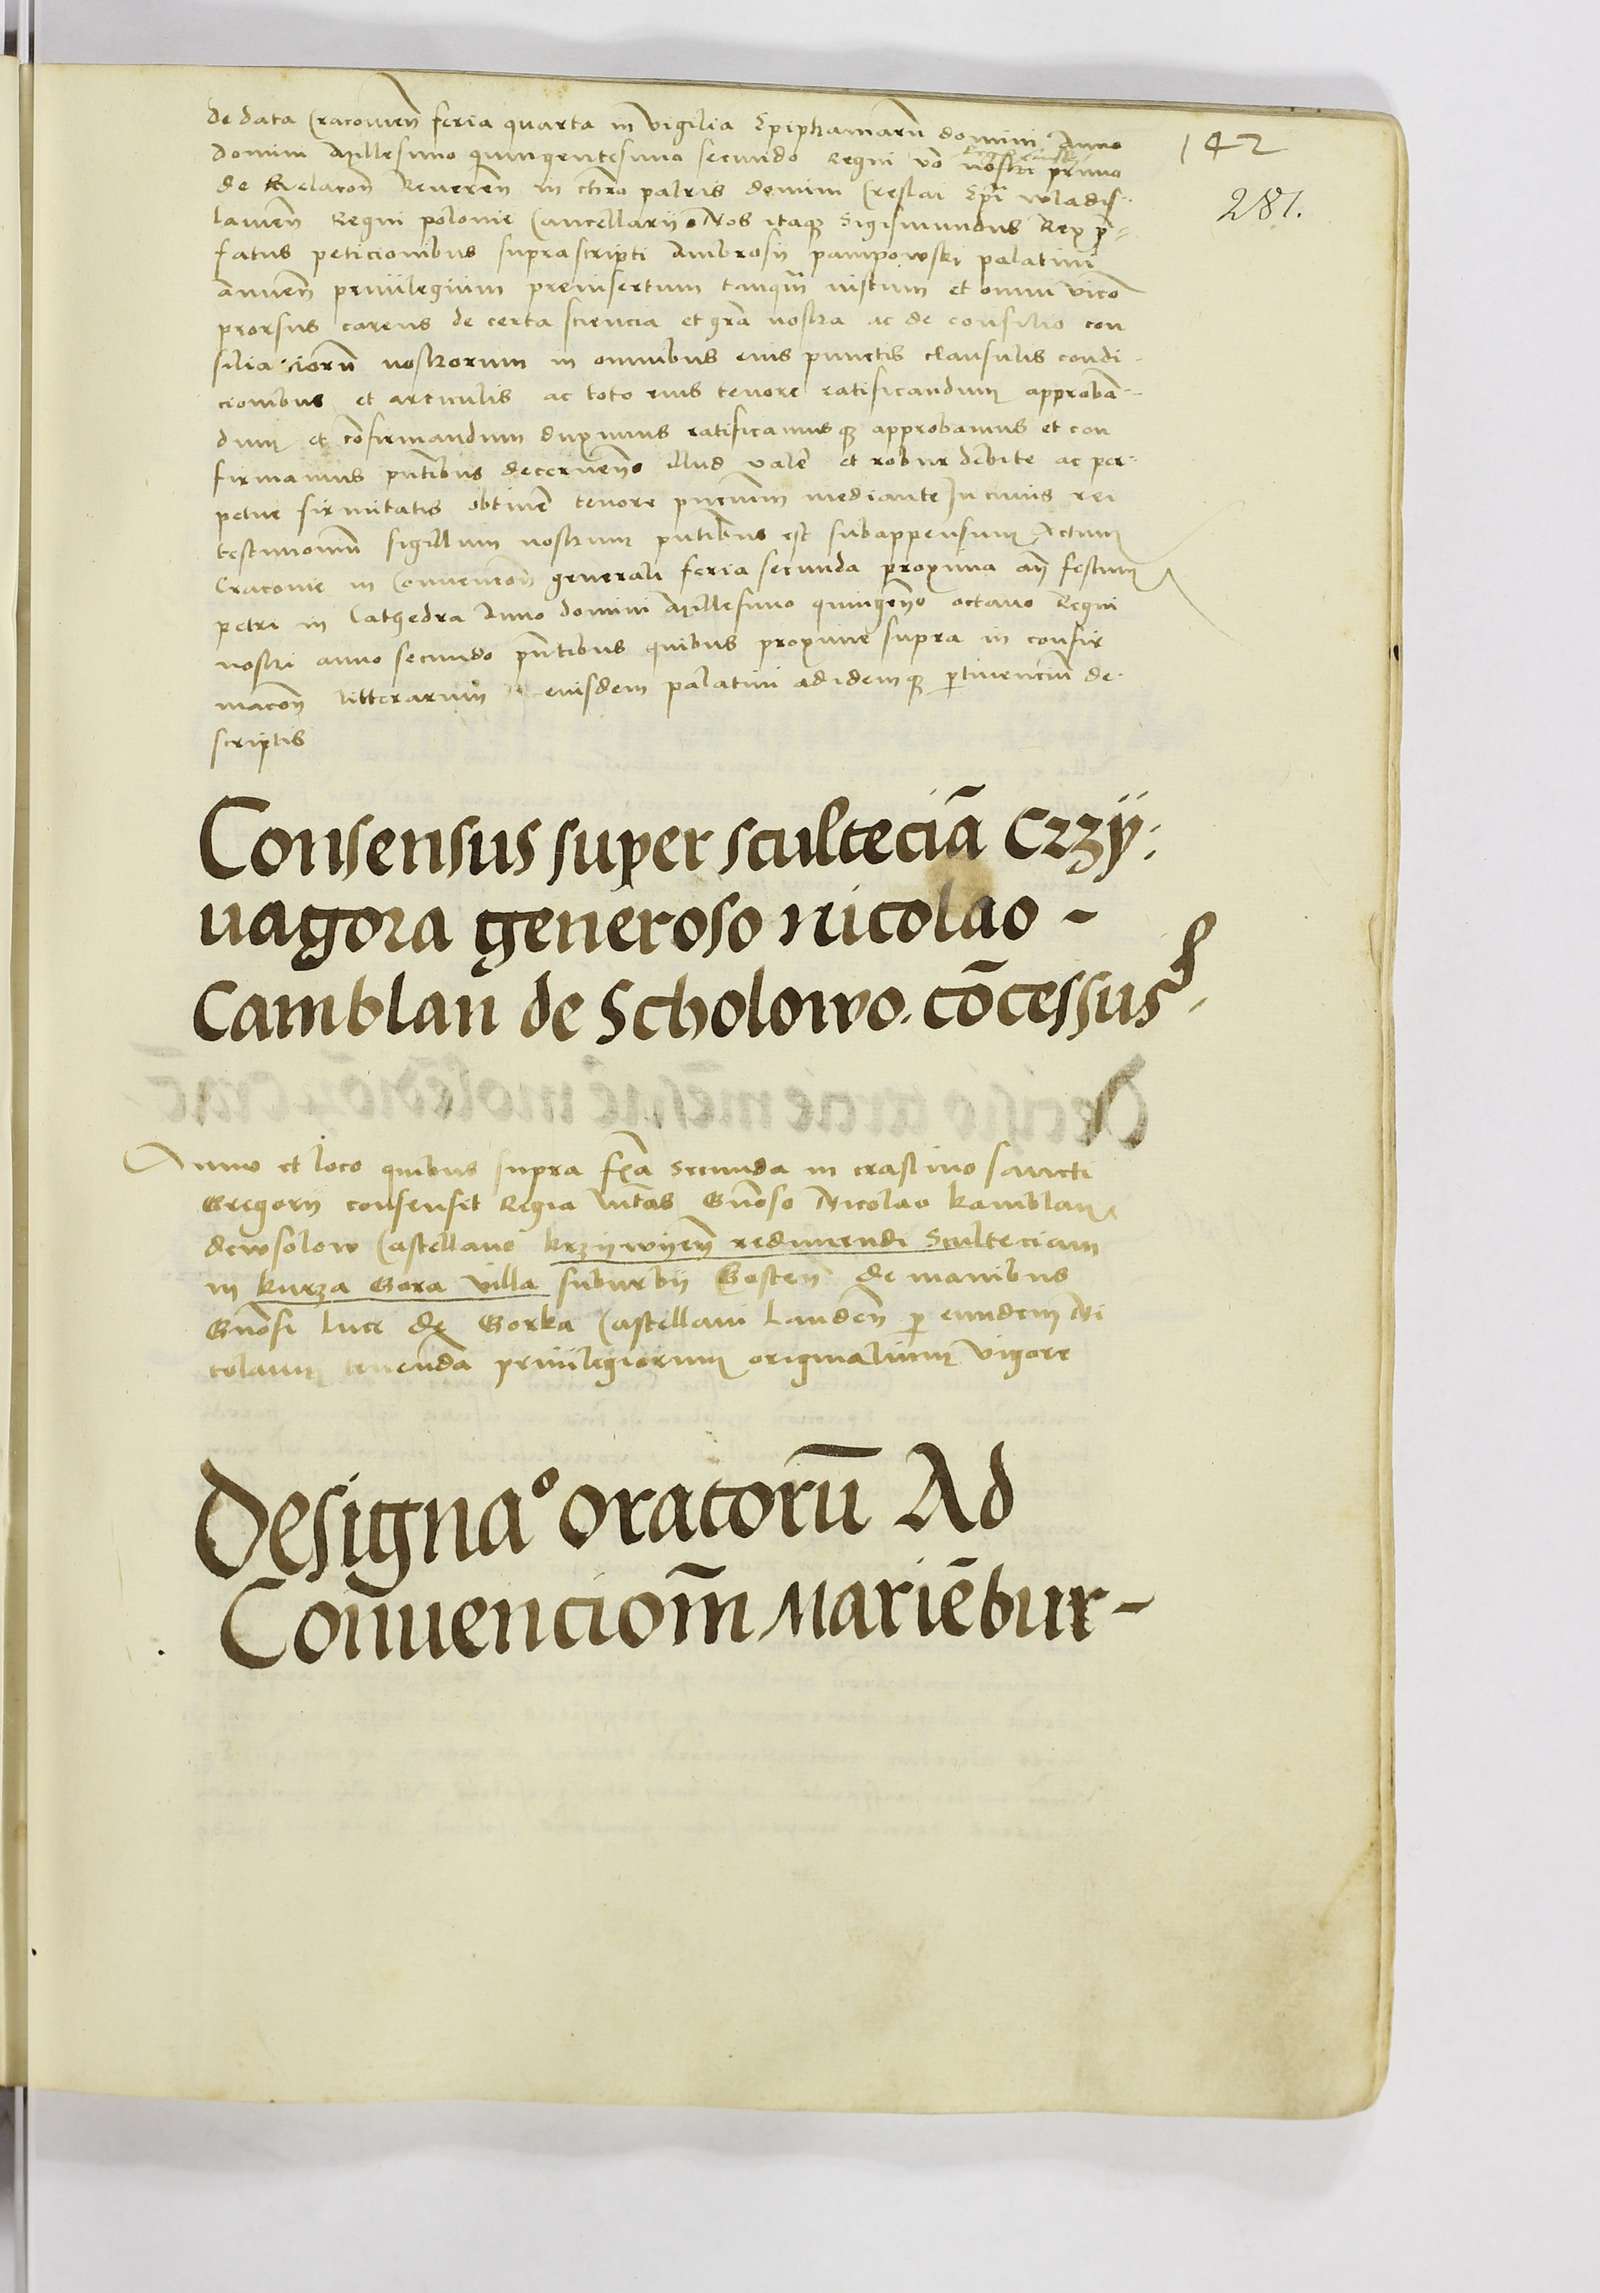 de data Cracouien̄ feria quarta in vigilia Epiphaniarū domini Anno
142
domini Millesimo quingentesimo secundo Regni vō nostri primo
281.
de Relacoñ Reueren̄ in chro patris domini Creslai Epī wladis-
lauien̄ Regni polonie Cancellarij Nos itaqꝫ Sigismundus Rex p̄-
fatus peticionibus suprascripti Ambrosij pampowski palatini
annuen̄ priuilegium preinsertum tanq̄m iustum et omni vicō
prorsus carens de certa sciencia et grā nostra ac de consilio con
siliariorū nostrorum in omnibus eius punctis clausulis condi-
cionibus et articulis ac toto eius tenore ratificandum approbā-
dum et cōfirmandum duximus ratificamusqꝫ approbamus et con
firmamus pn̄tibus decernen̄ illud valē et robur debite ac per-
petue firmitatis obtinē tenore pn̄cium mediante In cuius rei
testimoniū sigillum nostrum pn̄tibus est subappensum Actum
Cracouie in Conuencōn generali feria secunda proxima an̄ festum
petri in Cathedra Anno domini Millesimo quingen̄o octauo Regni
nostri anno secundo pn̄tibus quibus proxime supra in confir
macōn litterarum eiusdem palatini ad idemqꝫ ptinenciū de-
scriptis
Consensus super scultecia̅ Crzy-
uagora generoso nicolao -
Camblan de Scholowo. cōcessus
Anno et loco quibus supra fr̄ia secunda in crastino sancti
Gregorij consensit Regia Mtas Gn̄oso Nicolao kamblan
dewsolow Castellano krzywijen̄ redimendi Sculteciam
in kurza Gora villa suburbij Costen̄ de manibus
Gn̄osi luce de Gorka Castellani Landen̄ p eundem Ni
colaum tenenda priuilegiorum originalium vigore
Designaᵒ oratorū Ad
Conuencionm̄ Mariēbur-